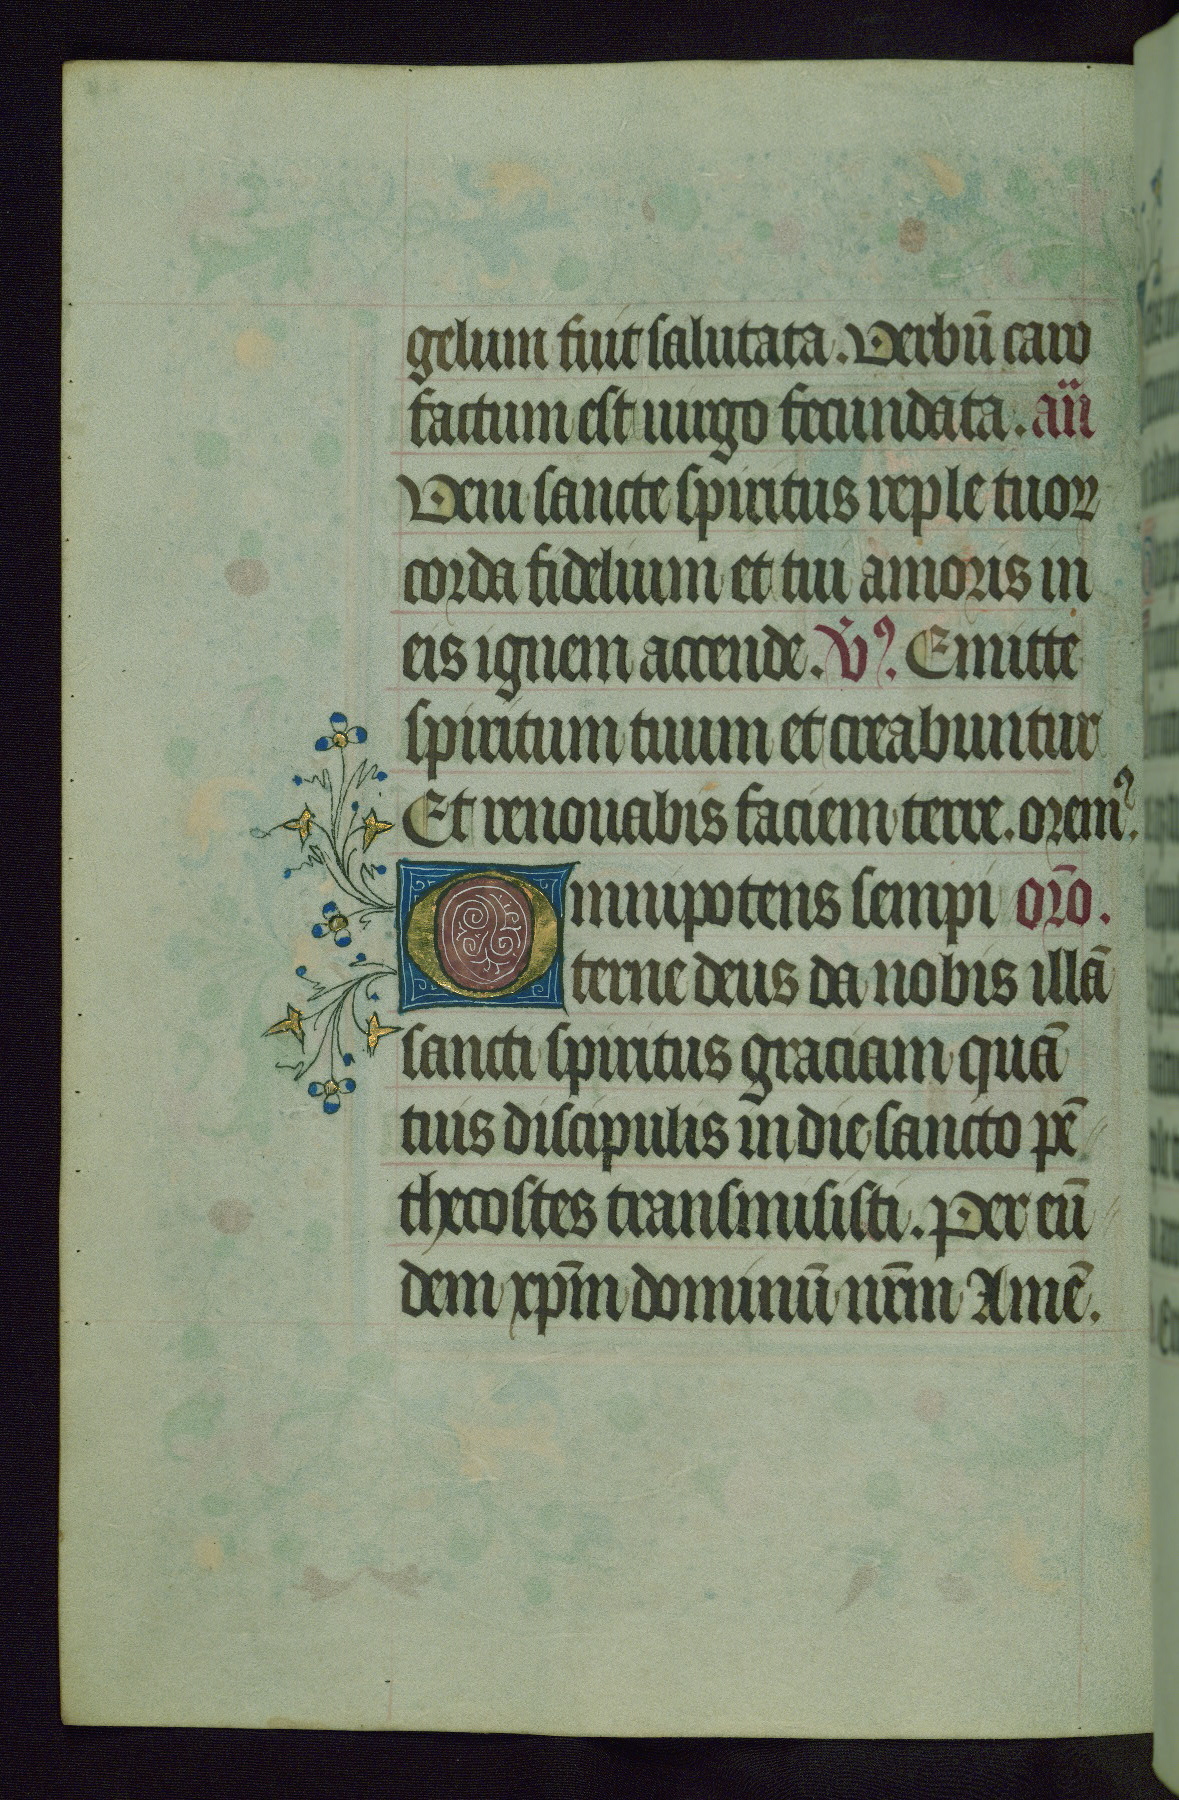 gelum fuit salutata. Verbū caro
factum est uirgo fecundata. an̄
Veni sancte spiritus reple tuoꝝ
corda fidelium et tui amoris in
eis ignem accende. V̾. Emitte
spiritum tuum et creabuntur
Et renouabis faciem terre. oremꝰ.
Omnipotens sempi oro̅.
terne deus da nobis illā
sancti spiritus graciam quā
tuis discipulis in die sancto pē
thecostes transmisisti. Per eū
dem xp̄m dominū nr̄m Amē.